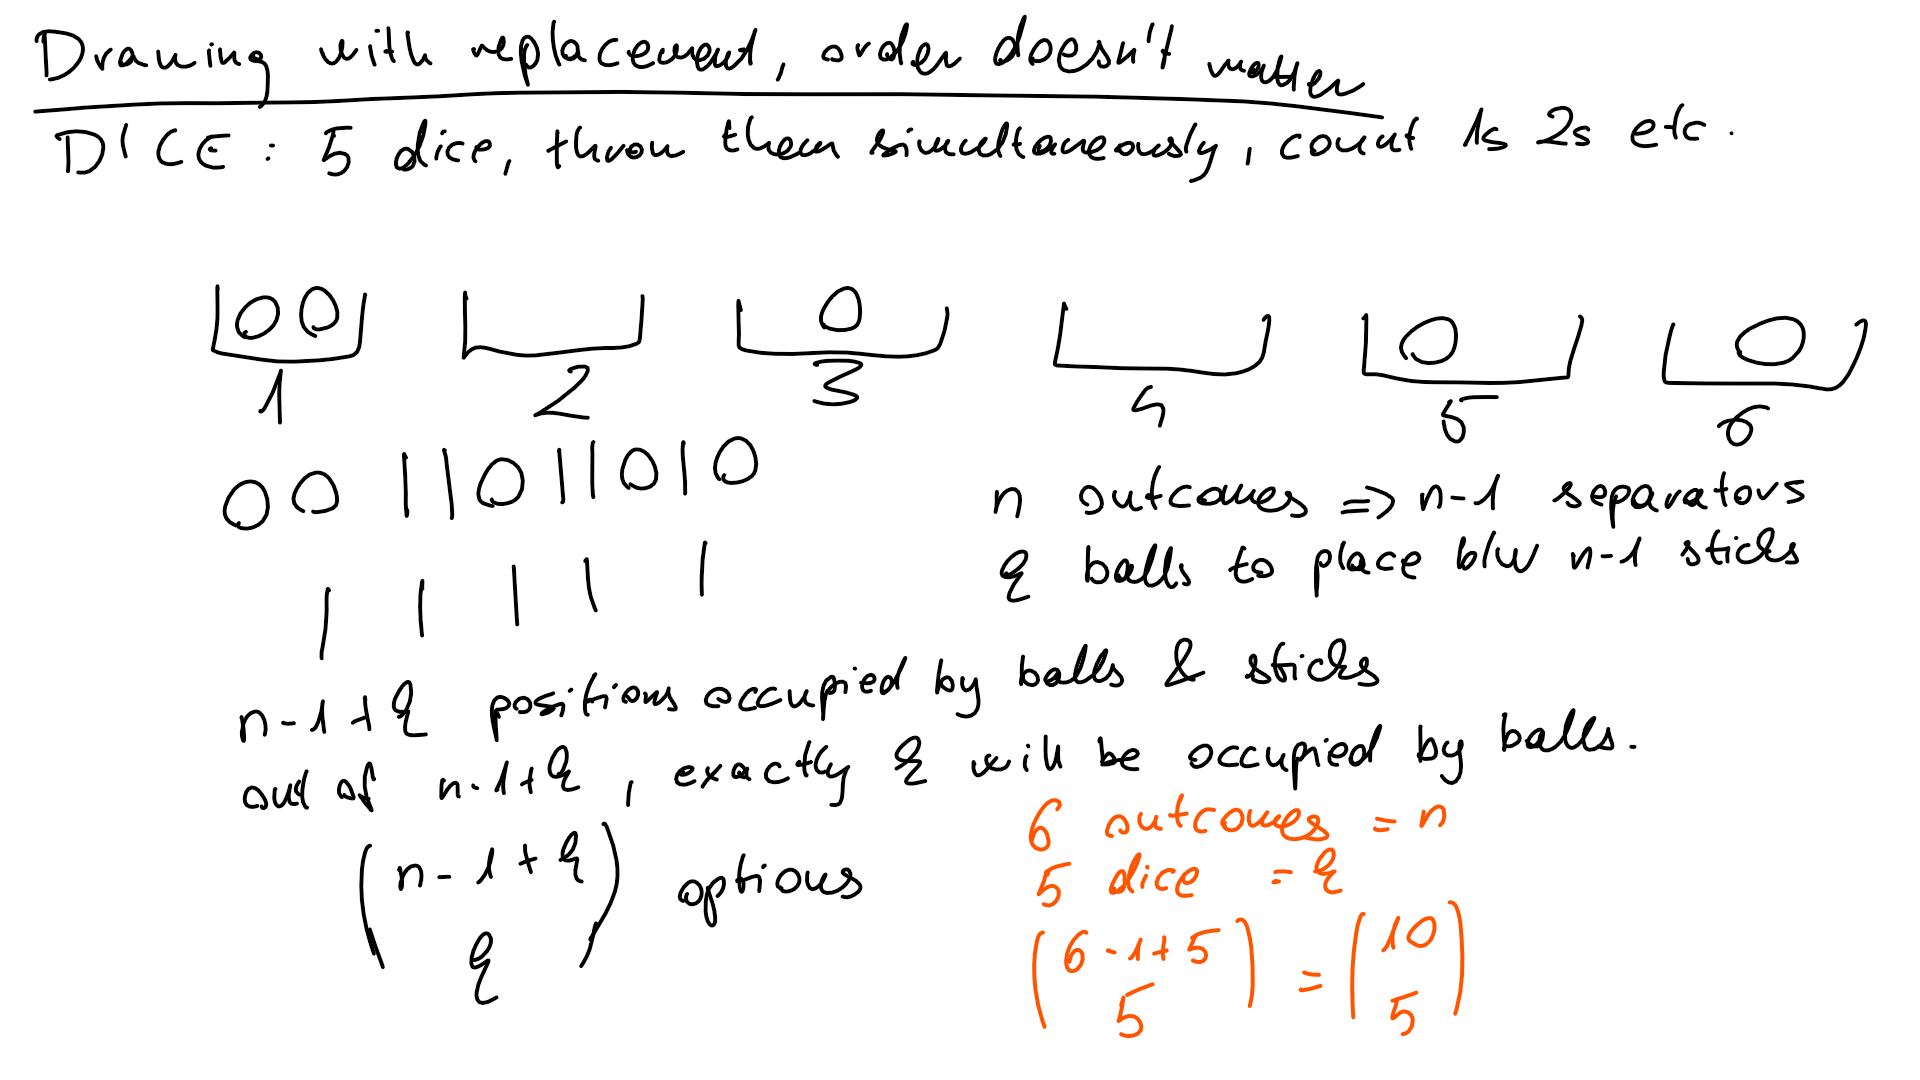 Drawing with replacement, order doesn't matter
DICE: 5 dice, throw them simultaneously, count 1s 2s etc.
1 2 3 4 5 6
00||0||0|0
n outcomes => n-1 separators
|||||
k balls to place b/w n-1 sticks
n-1+k positions occupied by balls & sticks
out of n-1+k, exactly k will be occupied by balls.
6 outcomes = n
(n-1+k k) options
5 dice = k
(6-1+5 5) = (10 5)